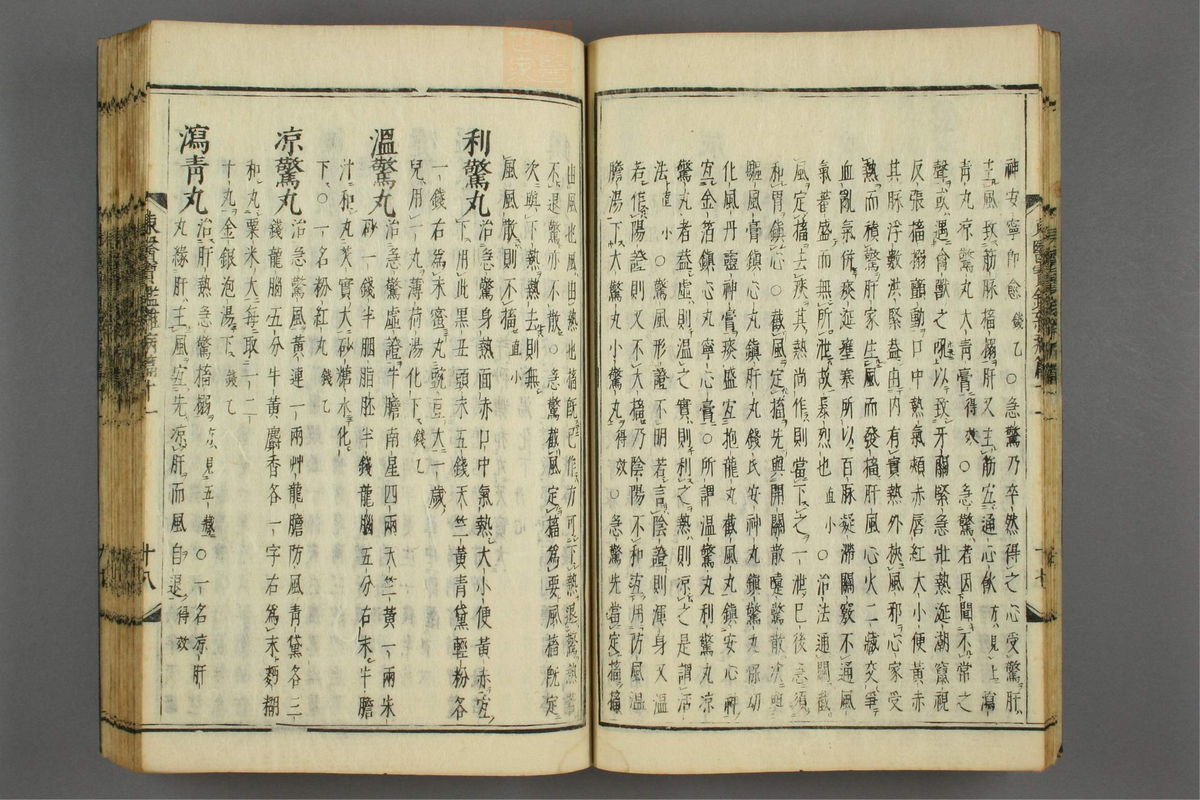 神安寧卽愈錢乙○急驚乃卒然得之心受驚肝
主風致筋脉搐搦肝又主筋宜通心飮方見上瀉
靑丸凉驚丸大靑膏得效○急驚者因聞不常之
聲或遇禽獸之吼以致牙關緊急壯熱涎潮竄視
反張搐搦顫動口中熱氣頰赤唇紅大小便黃赤
其脉浮數洪緊益由內有實熱外挾風邪心家受
熱而積驚肝家生風而發搐肝風心火二藏交爭
血亂氣倂痰涎壅塞所以百脉凝滯關竅不通風
氣蕃盛而無所泄故暴烈也直小○治法通關截
風定搐去痰其熱尚作則當下之一泄已後急須
和胃鎭心○截風定搐先與開關散嚏驚散次與
驅風膏鎭心丸鎭肝丸錢氏安神丸鎭驚丸保幼
化風丹靈神膏痰盛宜抱龍丸截風丸鎭安心神
宜金箔鎭心丸寧心膏○所謂溫驚丸利驚丸凉
驚丸者益虛則溫之實則利之熱則凉之是謂活
法直小○驚風形證不明若言陰證則渾身又溫
若作陽證則又不大搐乃陰陽不和宜用防風溫
膽湯下大小驚丸得效○急驚先當定搐搐
由風也風由熱也搐旣已作方可下熱退驚熱若
不退驚亦不散○急驚截風定搐爲要風搐旣定
次與下熱熱去則無直小
風風散則不搐
利驚丸
治急驚身熱面赤口中氣熱大小便黃赤宜
下用此黑丑頭末五錢天竺黃靑黛輕粉各
一錢右爲末蜜丸豌豆大一歲
兒用一丸薄荷湯化下錢乙
溫驚丸
治急驚虛證牛膽南星四兩天竺黃一兩朱
砂一錢半胭脂胚半錢龍腦五分右末牛膽
汁和丸芡實大砂糖水化
下○一名粉紅丸錢乙
凉驚丸
治急驚風黃連一兩艸龍膽防風靑黛各三
錢龍腦五分牛黃麝香各一字右爲末麪糊
和丸粟米大每取一二
十丸金銀泡湯下錢乙
瀉靑丸
治肝熱急驚搐搦方見五藏○一名凉肝
丸緣肝主風宜先凉肝而風自退得效
十八